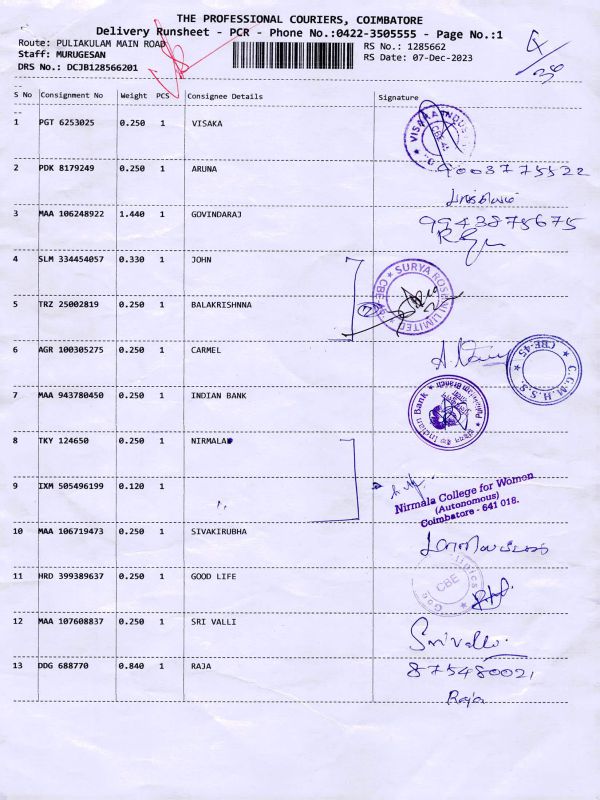 THE PROFESSIONAL COURIERS, COIMBATORE
Delivery Runsheet - PCR - Phone No.:0422-3505555 - Page No.:1
Route: PULIAKULAM MAIN ROAD
RS No.: 1285662
Staff: MURUGESAN
RS Date: 07-Dec-2023
DRS No.: DCJB128566201
S No Consignment No Weight PCS Consignee Details Signature
1 PGT 6253025 0.250 1 VISAKA
2 PDK 8179249 0.250 1 ARUNA 9003775522
3 MAA 106248922 1.440 1 GOVINDARAJ 9943875675
4 SLM 334454057 0.330 1 JOHN
SURYA ROSHNI LIMITED
CBE
5 TRZ 25002819 0.250 1 BALAKRISHNNA
6 AGR 100305275 0.250 1 CARMEL
C.G.M.H.S.S.
CBE-45
7 MAA 943780450 0.250 1 INDIAN BANK
Indian Bank
8 TKY 124650 0.250 1 NIRMALA
9 IXM 505496199 0.120 1 ,,
Nirmala College for Women
(Autonomous)
Coimbatore - 641 018.
10 MAA 106719473 0.250 1 SIVAKIRUBHA
11 HRD 399389637 0.250 1 GOOD LIFE
CBE
12 MAA 107608837 0.250 1 SRI VALLI
Srivalli
13 DDG 688770 0.840 1 RAJA 875480021
Raja